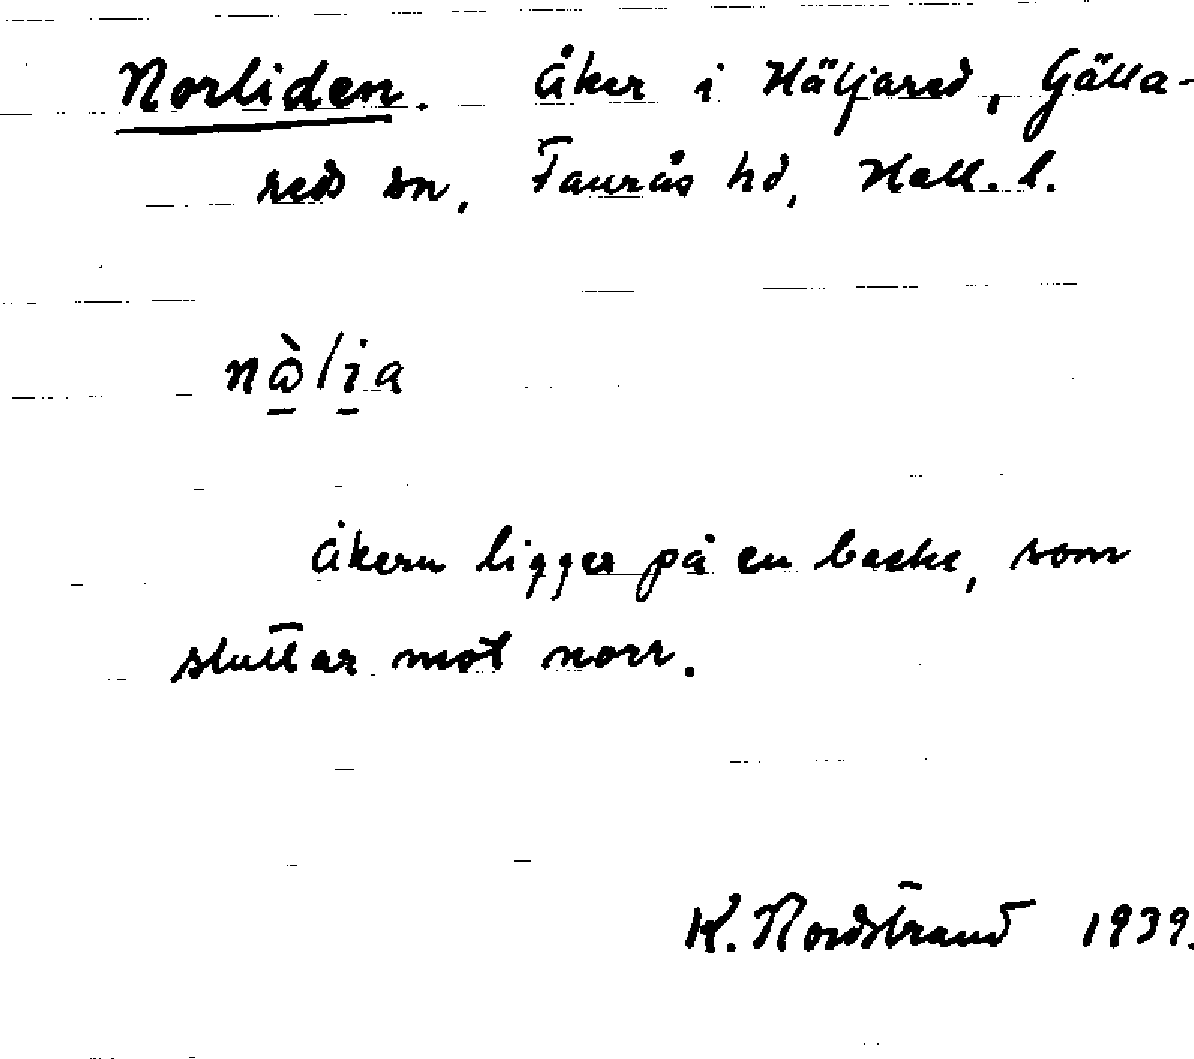 Norliden. Åker i Häljared, Gälla-
reds sn, Faurås hd, Hall. l.
nὼlia
Åkern ligger på en backe, som
sluttar mot norr.
K. Nordstrand 1939.